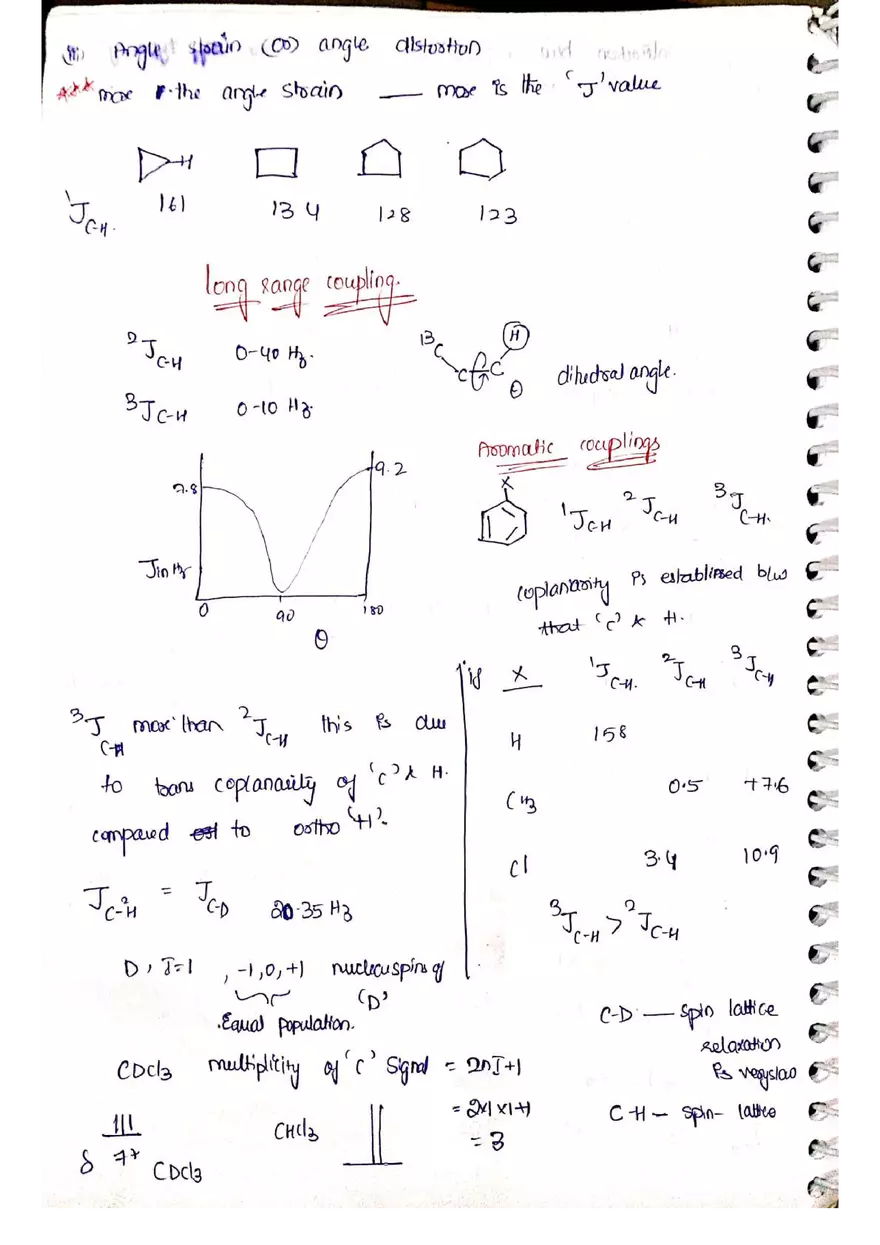 iii) Angle strain (or) angle distortion
*** more the angle strain — more is the 'J' value
H
¹J C-H. 161 134 128 123
long range coupling.
²J C-H 0-40 Hz.
³J C-H 0-10 Hz.
13C C C H θ dihedral angle.
9.2
7.8
J in Hz
0 90 180
θ
Aromatic couplings
X
¹J C-H ²J C-H ³J C-H.
coplanarity is established b/w
that 'C' & H.
if X ¹J C-H. ²J C-H ³J C-H
H 158
CH3 0.5 +7.6
Cl 3.4 10.9
³J C-H > ²J C-H
³J C-H more than ²J C-H this is due
to trans coplanarity of 'C' & H.
compared to ortho 'H'.
J C-²H = J C-D 20.35 Hz
D, I=1, -1,0,+1 nuclear spins of
'D'
Equal population.
CDCl3 multiplicity of 'C' signal = 2nI+1
= 2×1×1+1
= 3
δ 77 CDCl3
CHCl3
C-D — spin lattice
relaxation
is very slow
C-H — spin-lattice